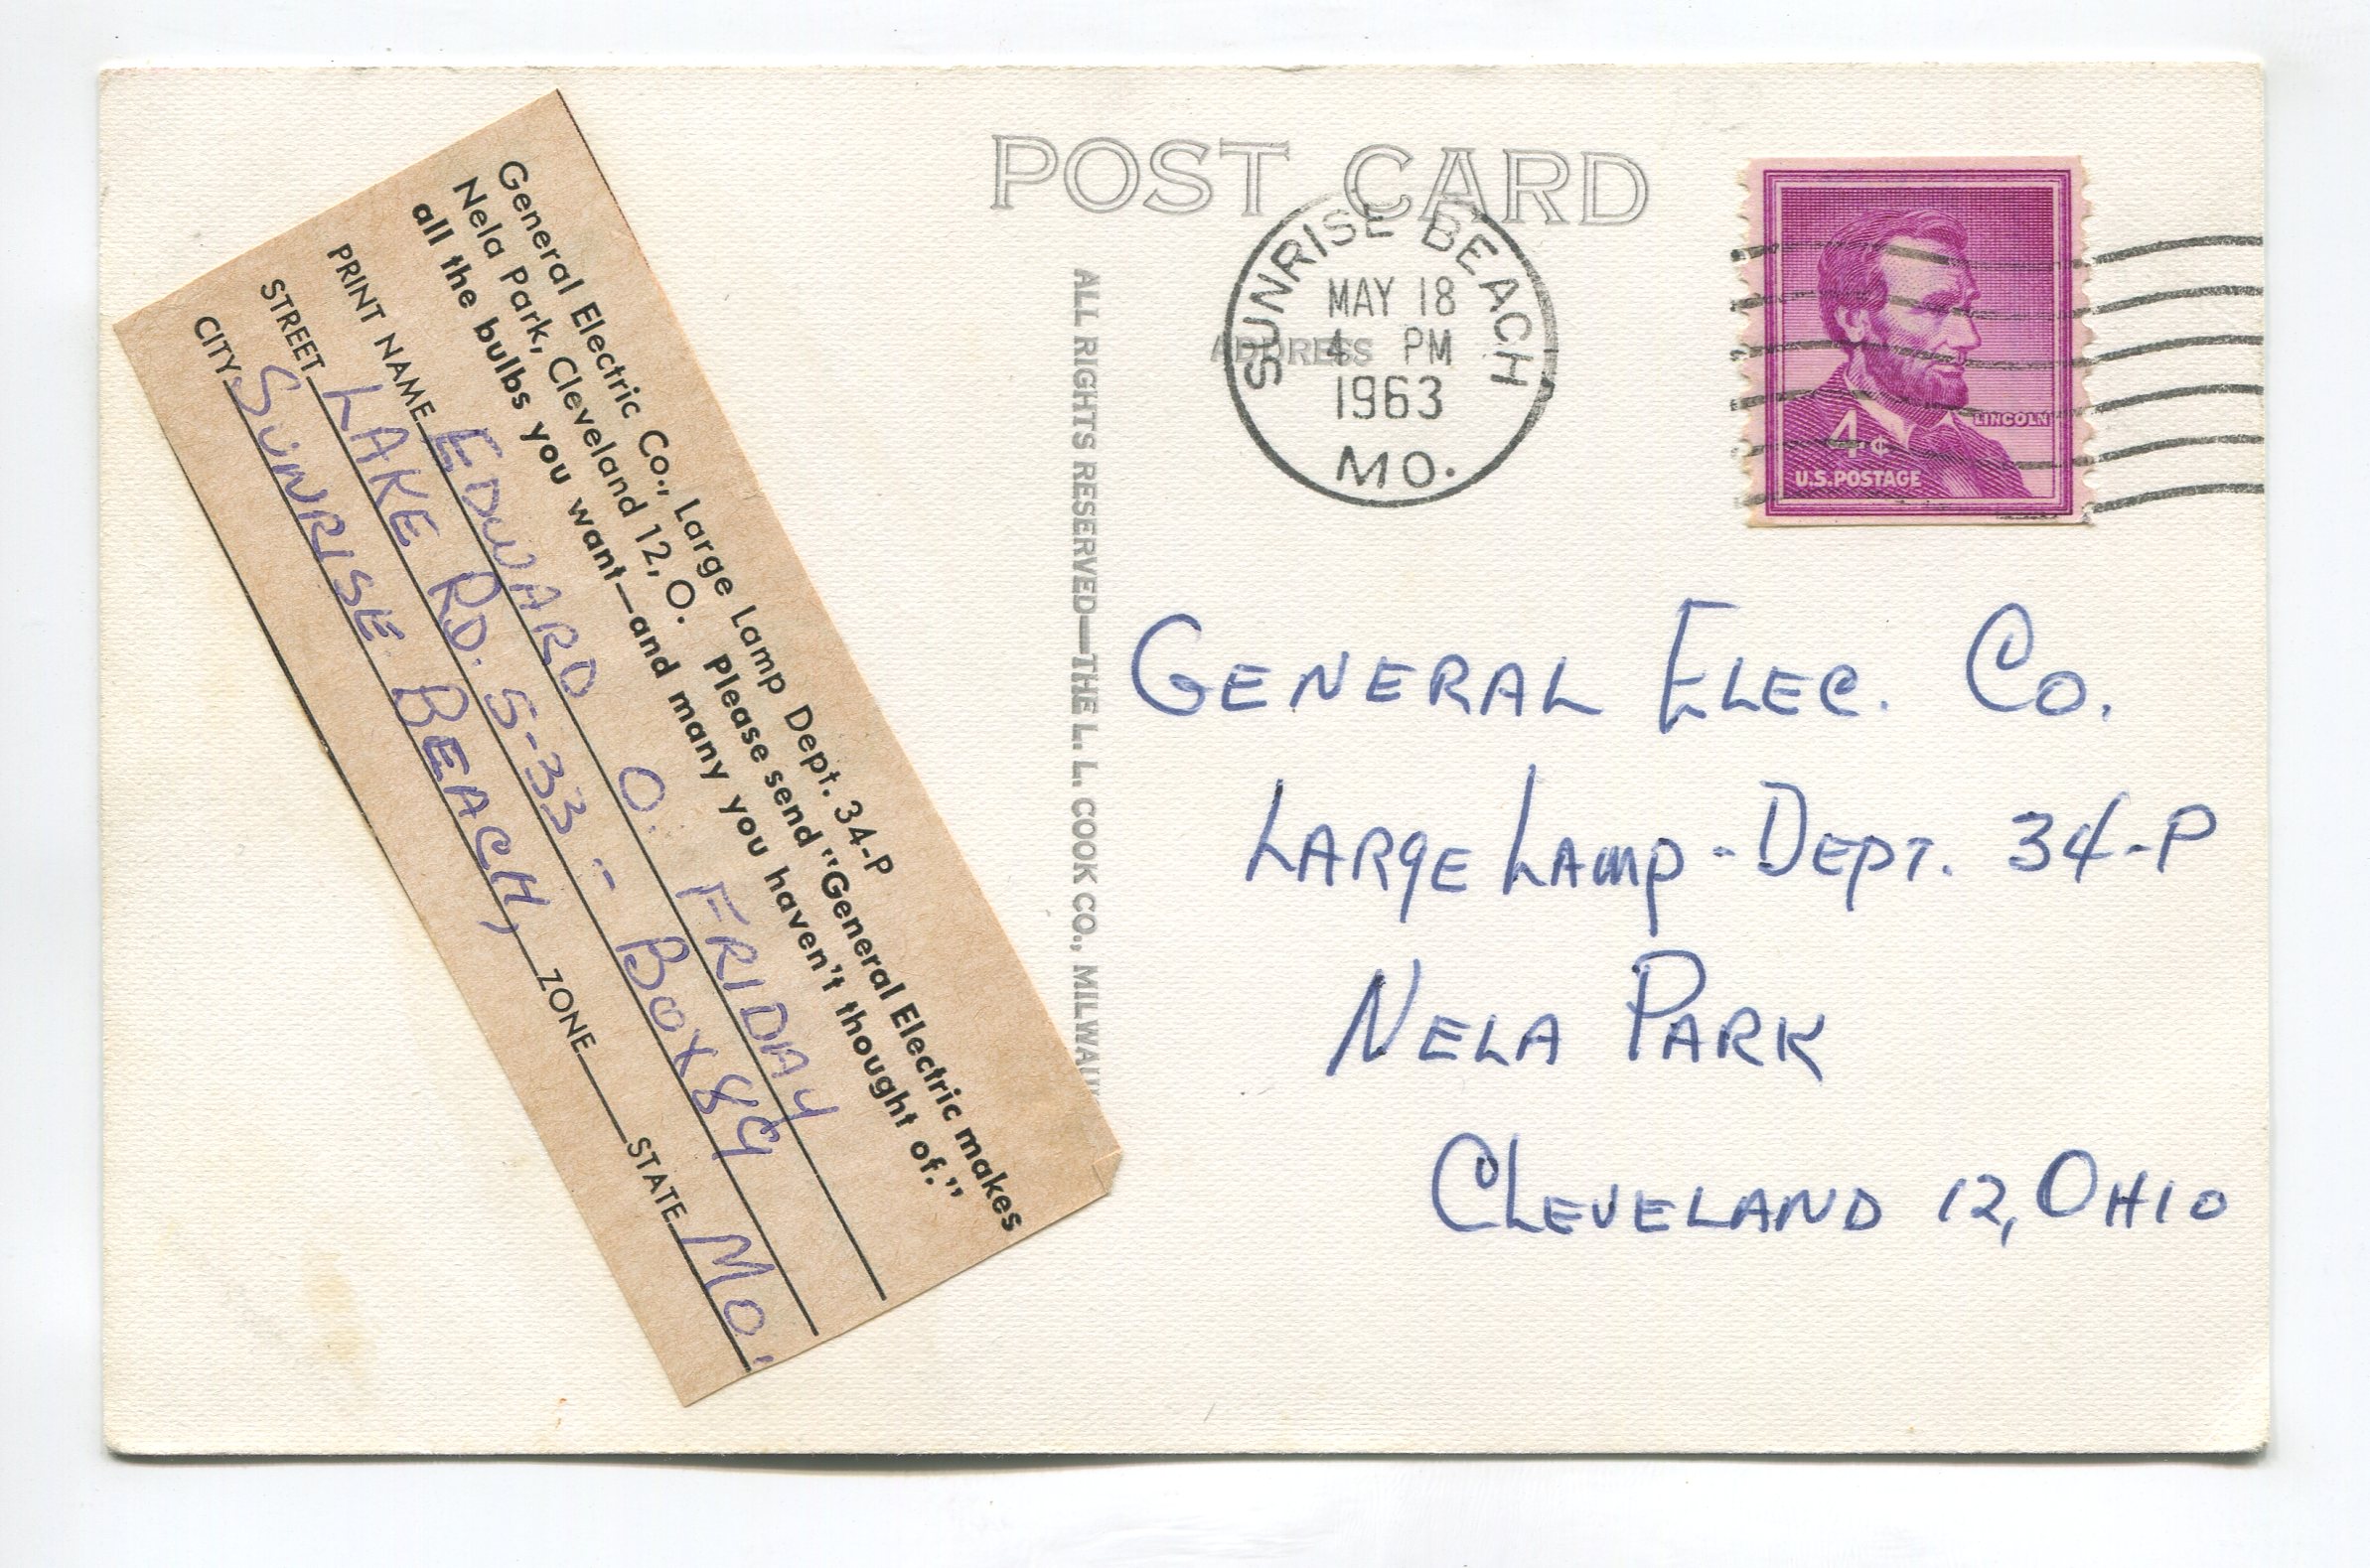 General Electric Co., Large Lamp Dept. 34-P
Nela Park, Cleveland 12, O. Please send "General Electric makes
all the bulbs you want—and many you haven't thought of."
PRINT NAME EDWARD O. FRIDAY
STREET LAKE RD. 5-33 - BOX 89
CITY SUNRISE BEACH, ZONE STATE MO.
POST CARD
ADDRESS
ALL RIGHTS RESERVED—THE L. L. COOK CO.,
SUNRISE BEACH
MAY 18
4 PM
1963
MO.
LINCOLN
4¢
U.S. POSTAGE
GENERAL ELEC. CO.
LARGE LAMP - DEPT. 34-P
NELA PARK
CLEVELAND 12, OHIO